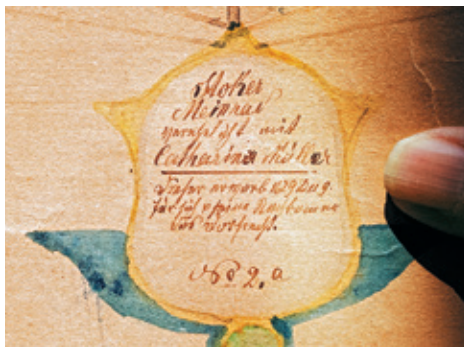 Stoker
Meinrad
verehelicht mit
Catharina Müller
Dieser erwarb 1829
für sich & seine Nachkomme
das Dorfrecht.
No 2,a